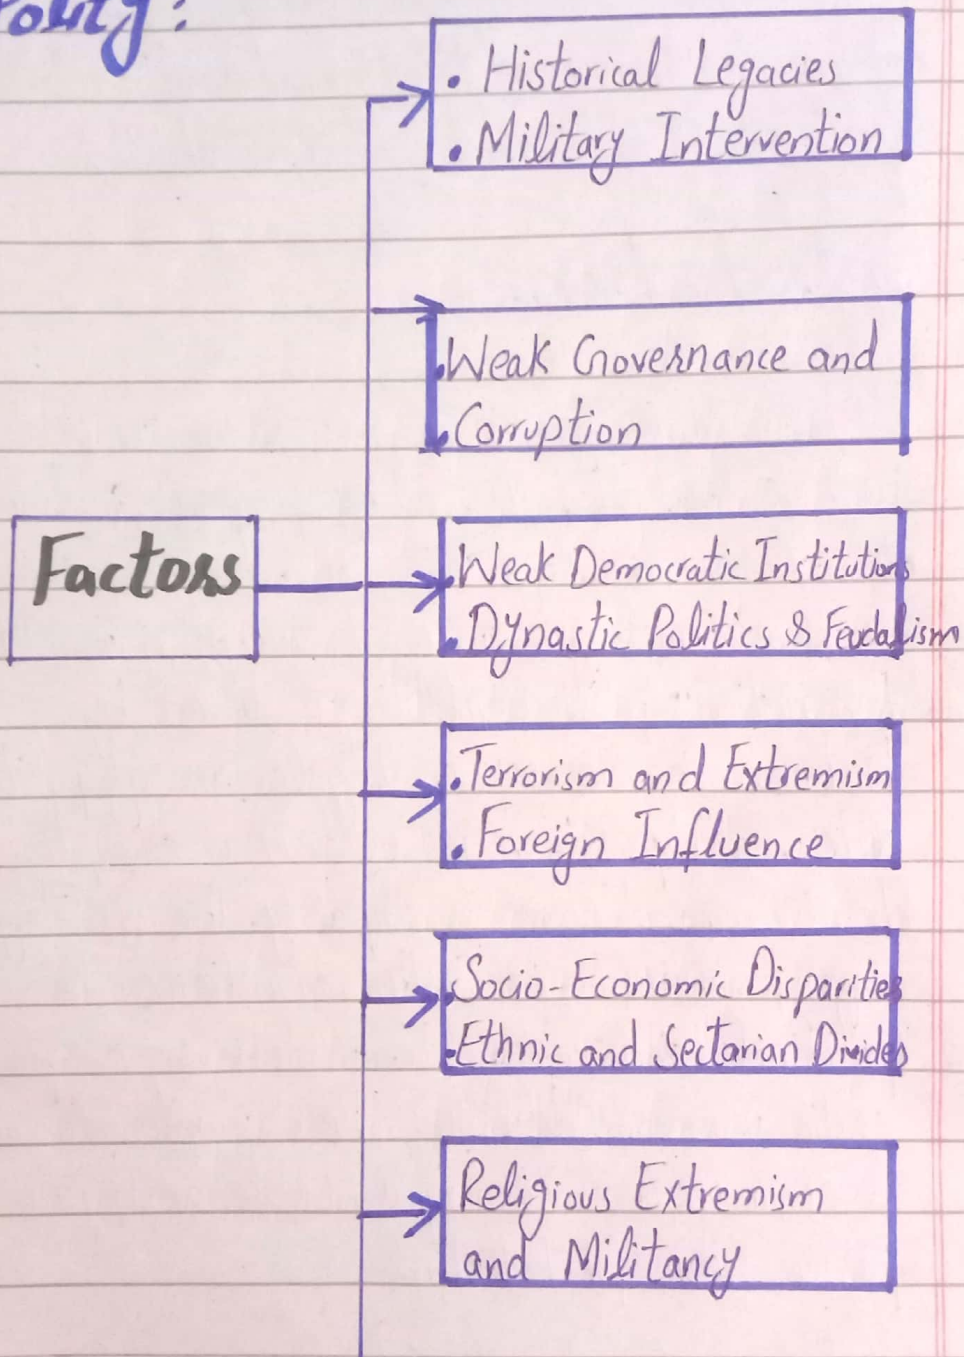 • Historical Legacies
• Military Intervention
• Weak Governance and
• Corruption
Factors
• Weak Democratic Institutions
• Dynastic Politics & Feudalism
• Terrorism and Extremism
• Foreign Influence
• Socio-Economic Disparities
• Ethnic and Sectarian Divides
Religious Extremism
and Militancy